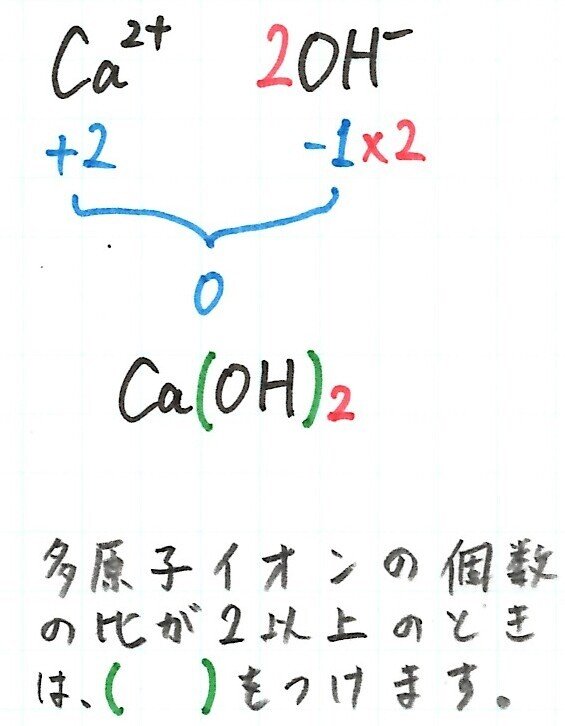 Ca²⁺ 2OH⁻
+2 -1×2
0
Ca(OH)₂
多原子イオンの個数
の比が2以上のとき
は、( )もつけます。